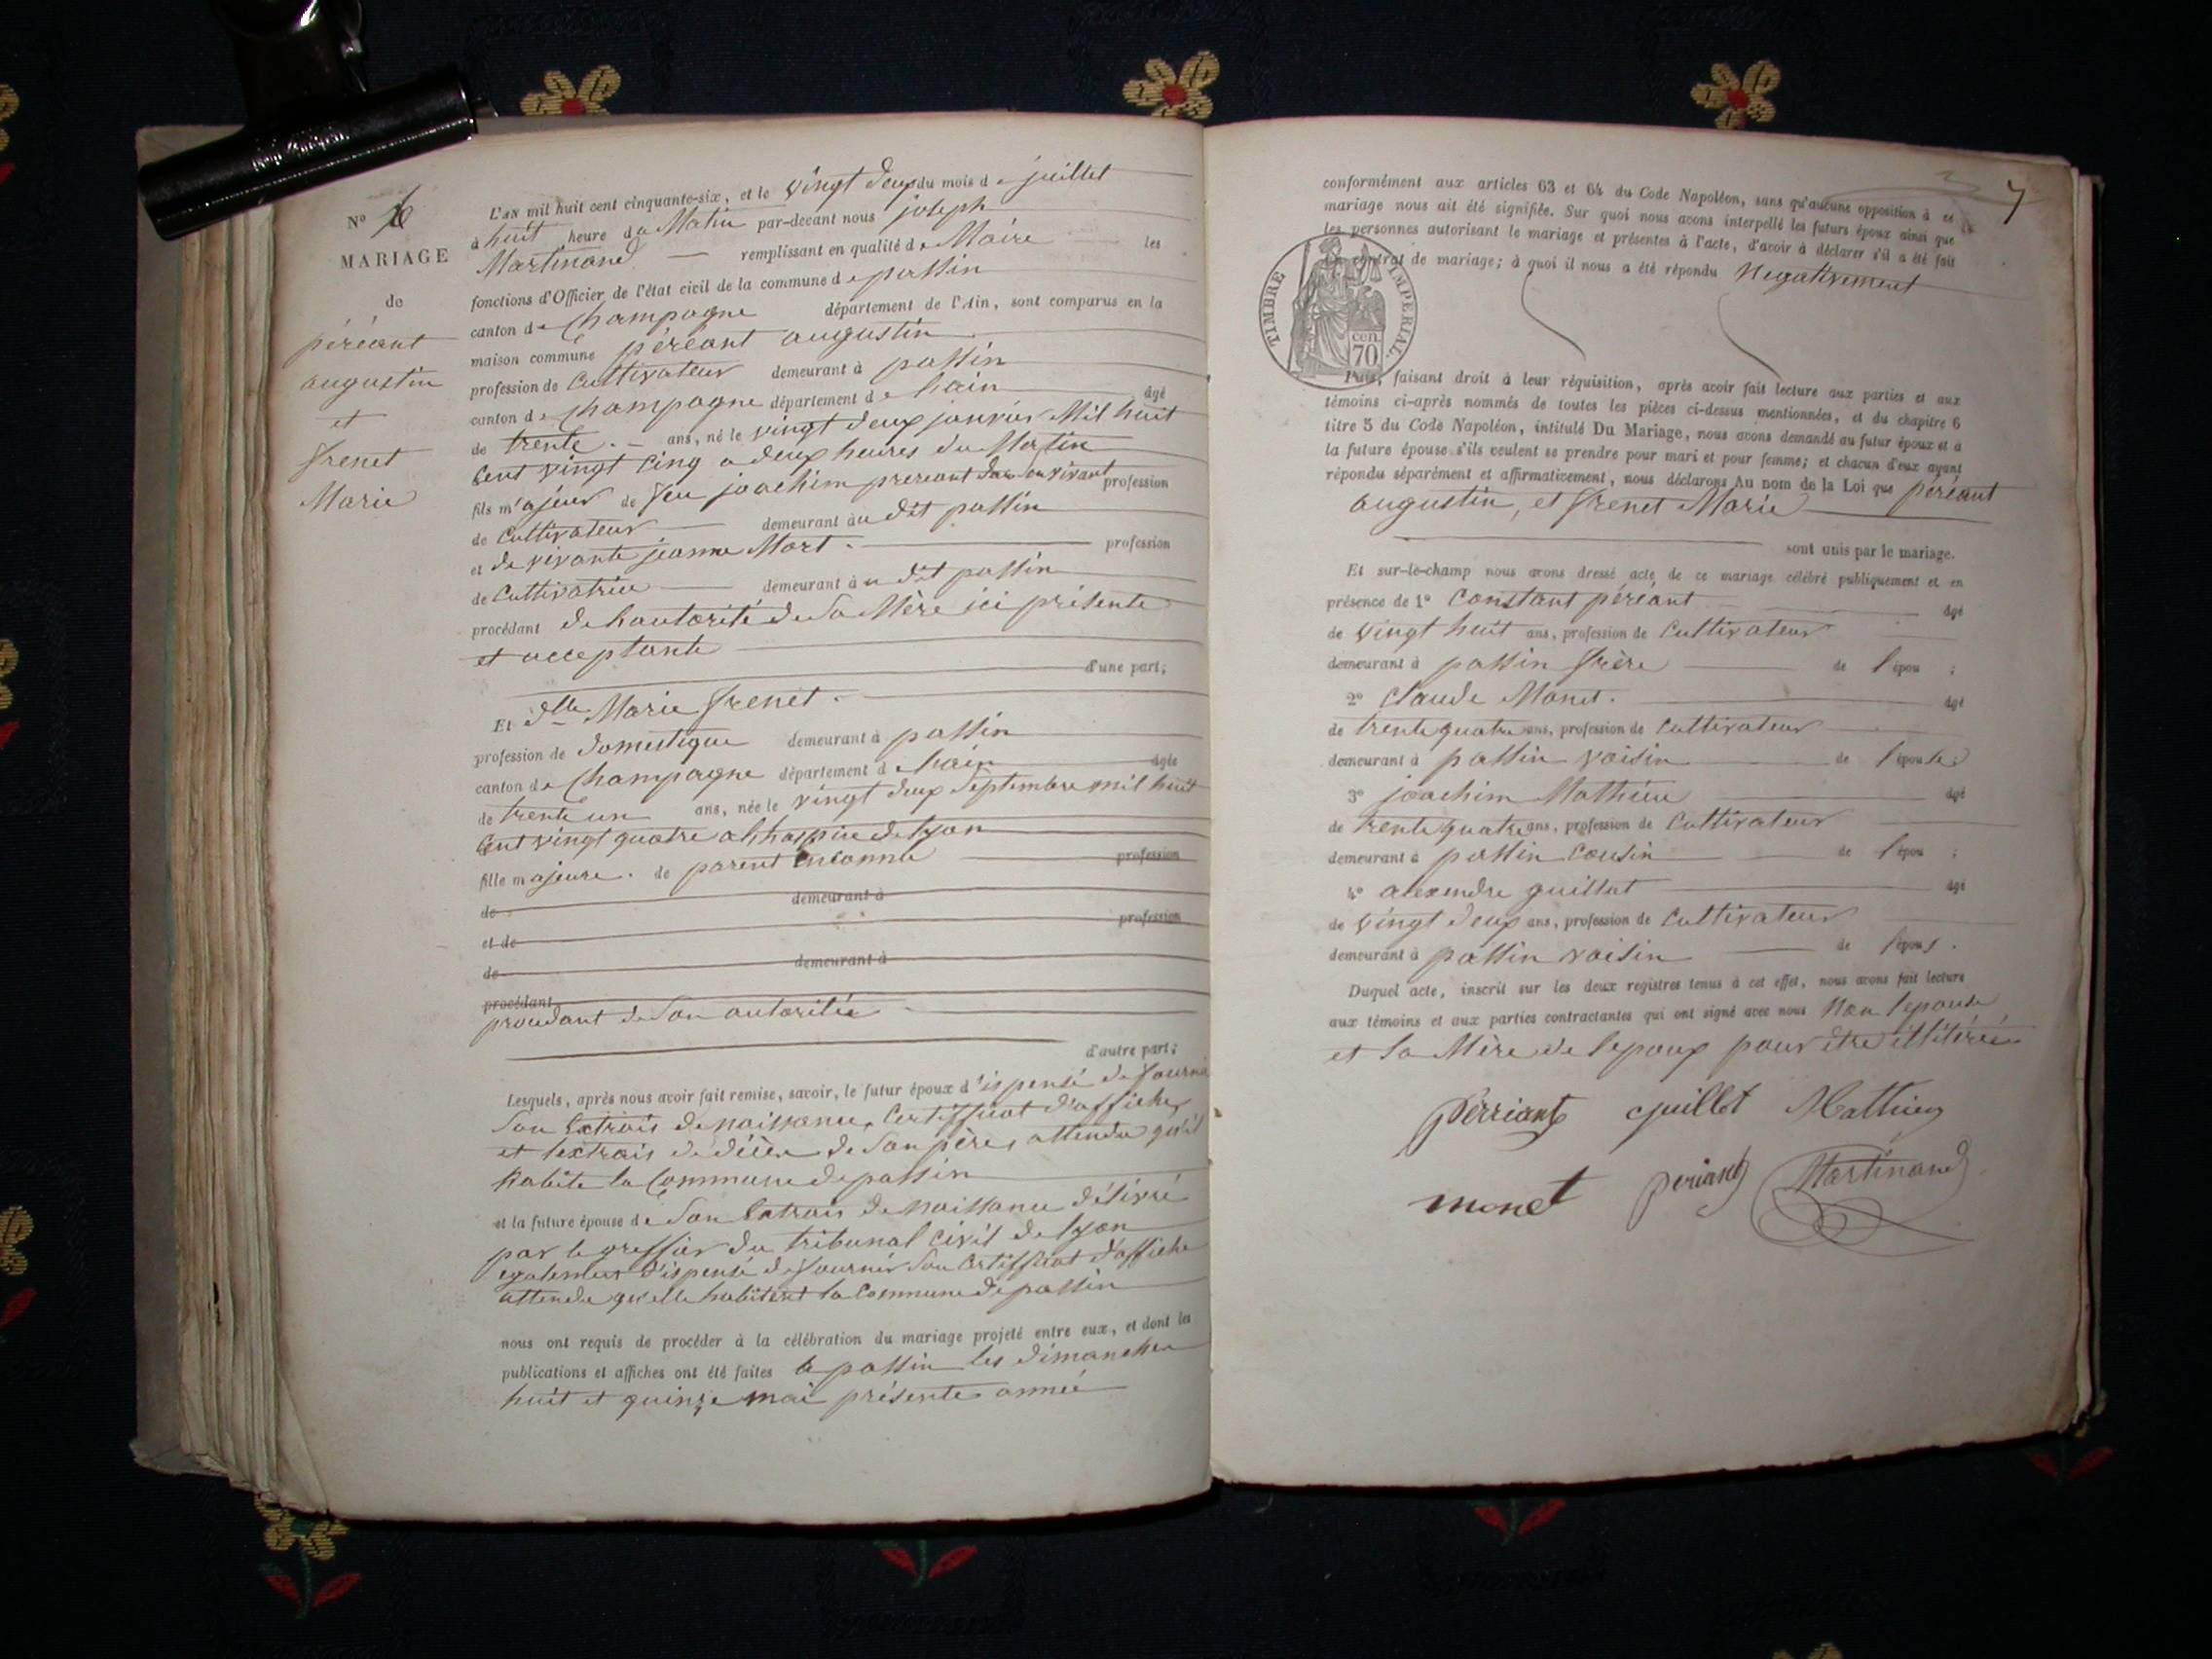 N° 6
MARIAGE
de
péréant
augustin
et
frenet
Marie
L'AN mil huit cent cinquante-six, et le vingt deux du mois de juillet
à huit heure du Matin par-devant nous joseph
Martinand remplissant en qualité de Maire les
fonctions d'Officier de l'état civil de la commune de passin
canton de Champagne département de l'Ain, sont comparus en la
maison commune péréant augustin
profession de Cultivateur demeurant à passin
canton de Champagne département de hain âgé
de trente ans, né le vingt deux janvier Mil huit
Cent vingt Cinq a deux heures du Matin
fils majeur de feu joachim prereant son vivant profession
de Cultivateur demeurant àu dit passin
et de vivante jeanne Mart profession
de Cultivatrice demeurant àu dit passin
procédant de hautorité de Sa Mère ici présente
et acceptante
d'une part;
Et dlle Marie frenet
profession de domestique demeurant à passin
canton de Champagne département de hain âgée
de trente un ans, née le vingt deux Septembre mil huit
Cent vingt quatre a lhospice de lyon
fille majeure de parent inconnu profession
de demeurant à
et de profession
de demeurant à
procédant
procedant de Son autoritée
d'autre part;
Lesquels, après nous avoir fait remise, savoir, le futur époux d'ispensé de fournir
Son Extrais de naissance, Certifficat d'affiche,
et lextrais de décès de Son père, attendu qu'il
habite la Commune de passin
et la future épouse de Son Extrais de naissance délivré
par le greffier du tribunal Civil de lyon
egalement d'ispensé de fournir Son Certifficat d'affiche
attendu qu'elle habitent la Commune de passin
nous ont requis de procéder à la célébration du mariage projeté entre eux, et dont les
publications et affiches ont été faites a passin les dimanches
huit et quinze mai présente année
7
conformément aux articles 63 et 64 du Code Napoléon, sans qu'aucune opposition à ce
mariage nous ait été signifiée. Sur quoi nous avons interpellé les futurs époux ainsi que
les personnes autorisant le mariage et présentes à l'acte, d'avoir à déclarer s'il a été fait
un contrat de mariage; à quoi il nous a été répondu Negativement
TIMBRE IMPERIAL.
cen.
70
Puis, faisant droit à leur réquisition, après avoir fait lecture aux parties et aux
témoins ci-après nommés de toutes les pièces ci-dessus mentionnées, et du chapitre 6
titre 5 du Code Napoléon, intitulé Du Mariage, nous avons demandé au futur époux et à
la future épouse s'ils veulent se prendre pour mari et pour femme; et chacun d'eux ayant
répondu séparément et affirmativement, nous déclarons Au nom de la Loi que péréant
augustin, et frenet Marie
sont unis par le mariage.
Et sur-le-champ nous avons dressé acte de ce mariage célébré publiquement et en
présence de 1° Constant péréant âgé
de vingt huit ans, profession de Cultivateur
demeurant à passin frère de l'épou ;
2° Claude Monet. âgé
de trente quatre ans, profession de Cultivateur
demeurant à passin voisin de l'épouse
3° joachim Mathieu âgé
de trente quatre ans, profession de Cultivateur
demeurant à passin Cousin de l'épou ;
4° alexendre guillot âgé
de vingt deux ans, profession de Cultivateur
demeurant à passin voisin de l'épous.
Duquel acte, inscrit sur les deux registres tenus à cet effet, nous avons fait lecture
aux témoins et aux parties contractantes qui ont signé avec nous Non lepouse
et la Mère de lepoux pour etre illitérée
perriant guillot Mathieu
monet periant Martinand